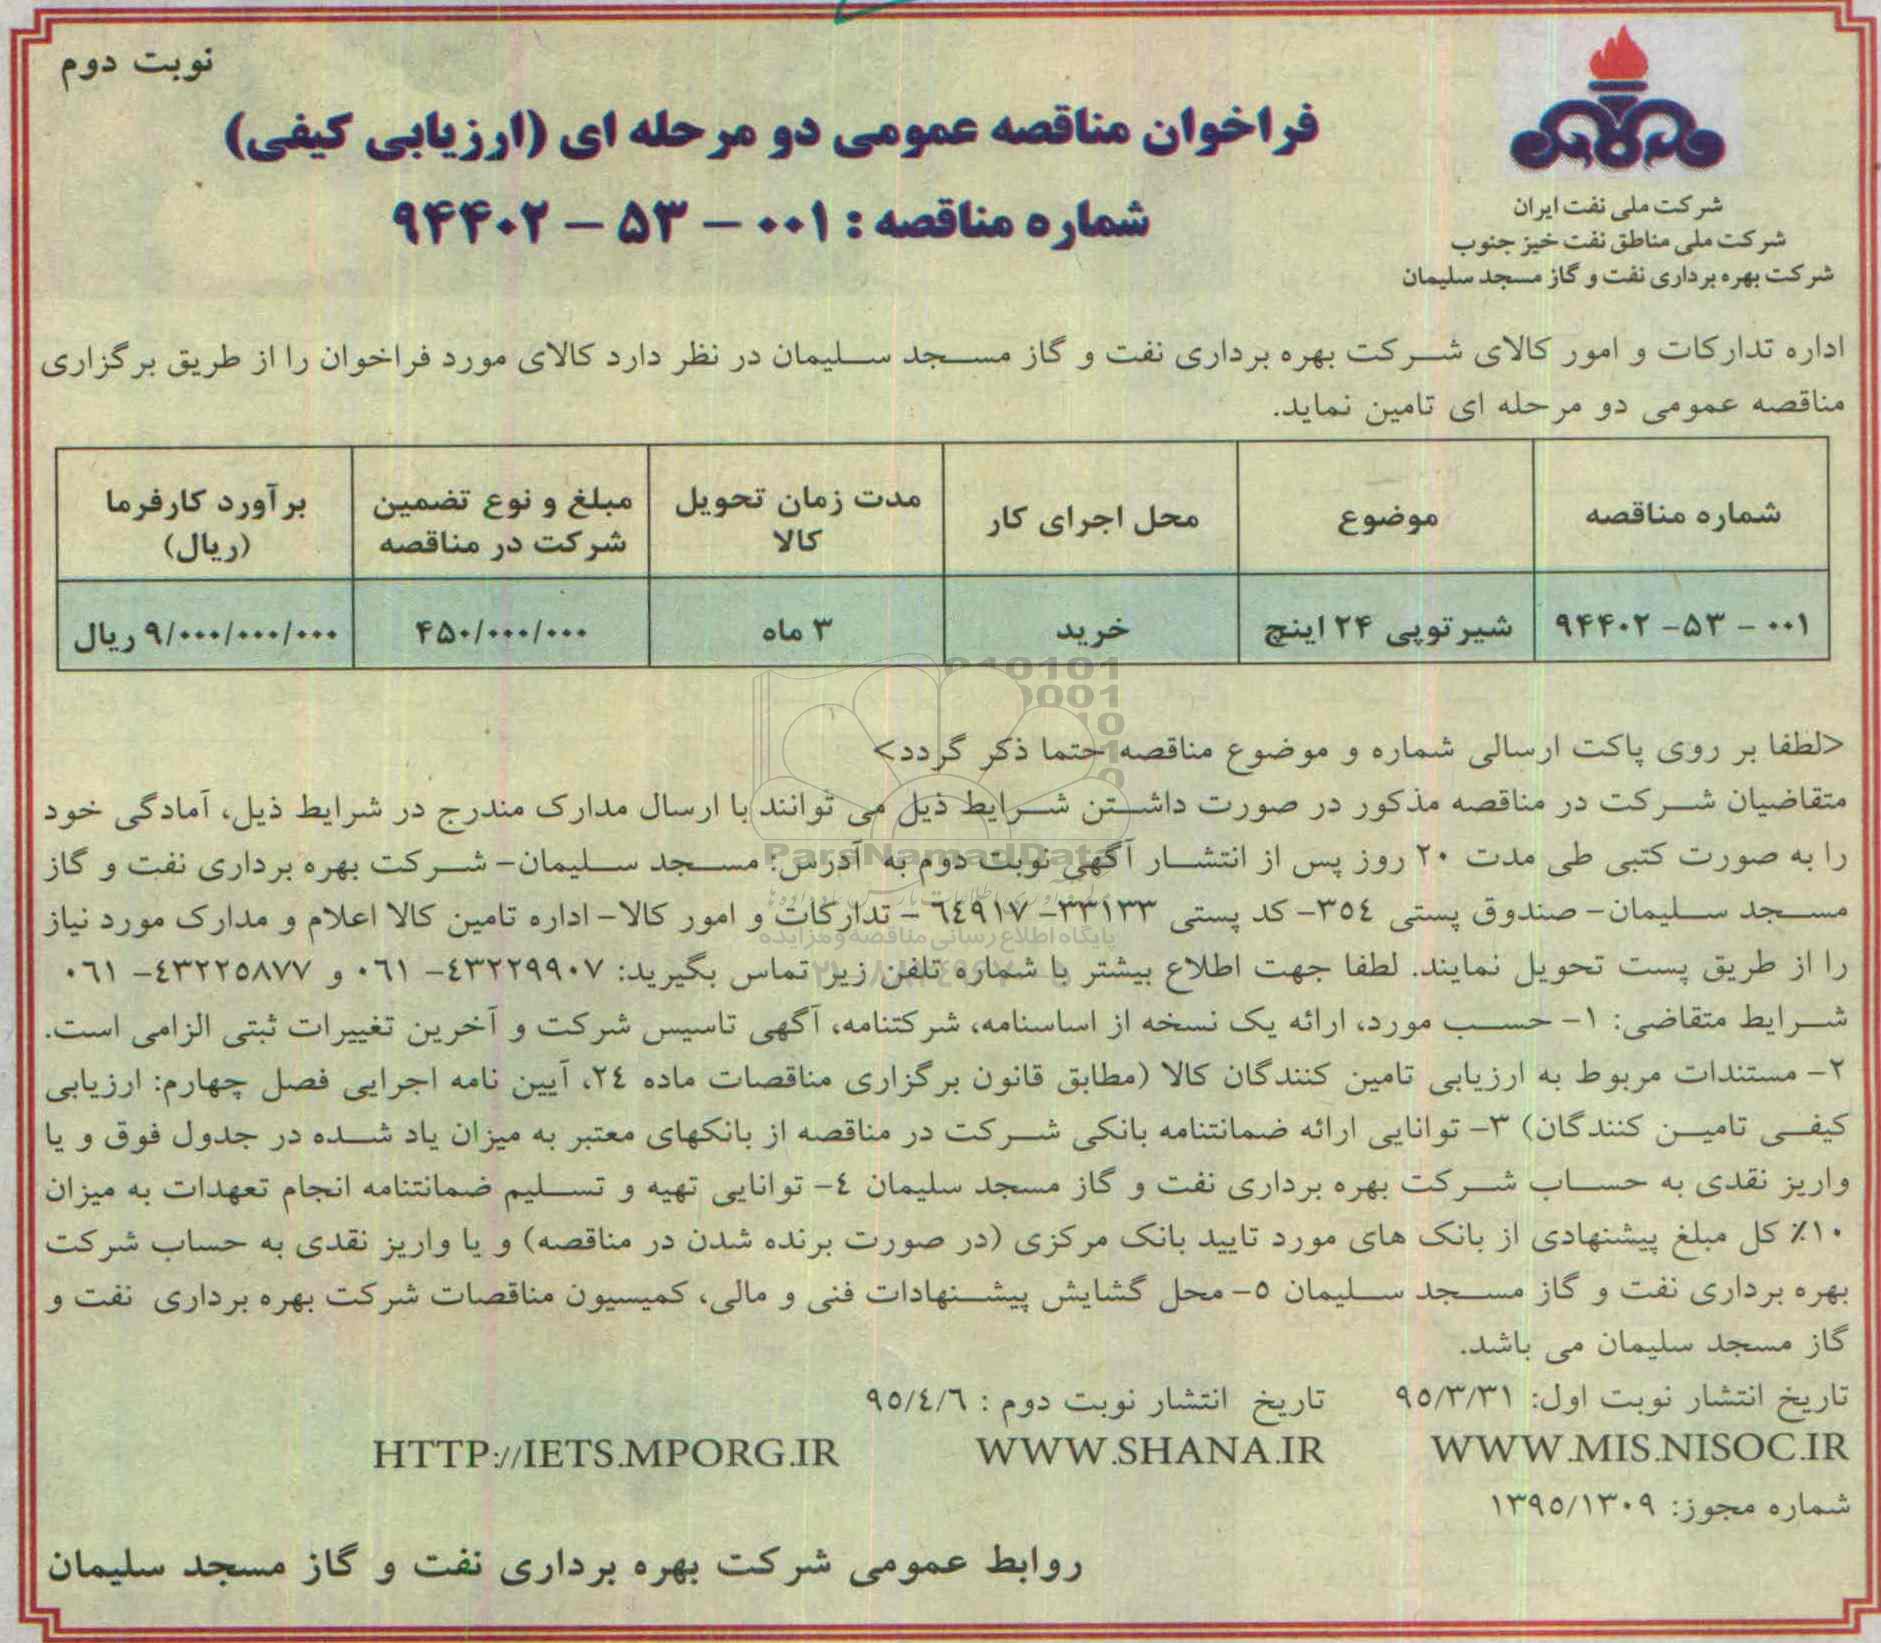 نوبت دوم
فراخوان مناقصه عمومی دو مرحله ای (ارزیابی کیفی)
شماره مناقصه : ۰۰۱ – ۵۳ – ۹۴۴۰۲
شرکت ملی نفت ایران
شرکت ملی مناطق نفت خیز جنوب
شرکت بهره برداری نفت و گاز مسجد سلیمان
اداره تدارکات و امور کالای شرکت بهره برداری نفت و گاز مسجد سلیمان در نظر دارد کالای مورد فراخوان را از طریق برگزاری
مناقصه عمومی دو مرحله ای تامین نماید.
شماره مناقصه | موضوع | محل اجرای کار | مدت زمان تحویل کالا | مبلغ و نوع تضمین شرکت در مناقصه | برآورد کارفرما (ریال)
۰۰۱ – ۵۳– ۹۴۴۰۲ | شیر توپی ۲۴ اینچ | خرید | ۳ ماه | ۴۵۰/۰۰۰/۰۰۰ | ۹/۰۰۰/۰۰۰/۰۰۰ ریال
<لطفا بر روی پاکت ارسالی شماره و موضوع مناقصه حتما ذکر گردد>
متقاضیان شرکت در مناقصه مذکور در صورت داشتن شرایط ذیل می توانند با ارسال مدارک مندرج در شرایط ذیل، آمادگی خود
را به صورت کتبی طی مدت ۲۰ روز پس از انتشار آگهی نوبت دوم به آدرس: مسجد سلیمان- شرکت بهره برداری نفت و گاز
مسجد سلیمان- صندوق پستی ۳۵٤- کد پستی ۳۳۱۳۳- ٦٤۹۱۷ - تدارکات و امور کالا- اداره تامین کالا اعلام و مدارک مورد نیاز
را از طریق پست تحویل نمایند. لطفا جهت اطلاع بیشتر با شماره تلفن زیر تماس بگیرید: ٤۳۲۲۹۹۰۷- ۰٦۱ و ٤۳۲۲۵۸۷۷- ۰٦۱
شرایط متقاضی: ۱- حسب مورد، ارائه یک نسخه از اساسنامه، شرکتنامه، آگهی تاسیس شرکت و آخرین تغییرات ثبتی الزامی است.
۲- مستندات مربوط به ارزیابی تامین کنندگان کالا (مطابق قانون برگزاری مناقصات ماده ۲٤، آیین نامه اجرایی فصل چهارم: ارزیابی
کیفی تامین کنندگان) ۳- توانایی ارائه ضمانتنامه بانکی شرکت در مناقصه از بانکهای معتبر به میزان یاد شده در جدول فوق و یا
واریز نقدی به حساب شرکت بهره برداری نفت و گاز مسجد سلیمان ٤- توانایی تهیه و تسلیم ضمانتنامه انجام تعهدات به میزان
۱۰٪ کل مبلغ پیشنهادی از بانک های مورد تایید بانک مرکزی (در صورت برنده شدن در مناقصه) و یا واریز نقدی به حساب شرکت
بهره برداری نفت و گاز مسجد سلیمان ۵- محل گشایش پیشنهادات فنی و مالی، کمیسیون مناقصات شرکت بهره برداری نفت و
گاز مسجد سلیمان می باشد.
تاریخ انتشار نوبت اول: ۹۵/۳/۳۱ تاریخ انتشار نوبت دوم : ۹۵/٤/٦
WWW.MIS.NISOC.IR WWW.SHANA.IR HTTP://IETS.MPORG.IR
شماره مجوز: ۱۳۹۵/۱۳۰۹
روابط عمومی شرکت بهره برداری نفت و گاز مسجد سلیمان
ParsNamadData
پایگاه اطلاع رسانی مناقصه و مزایده